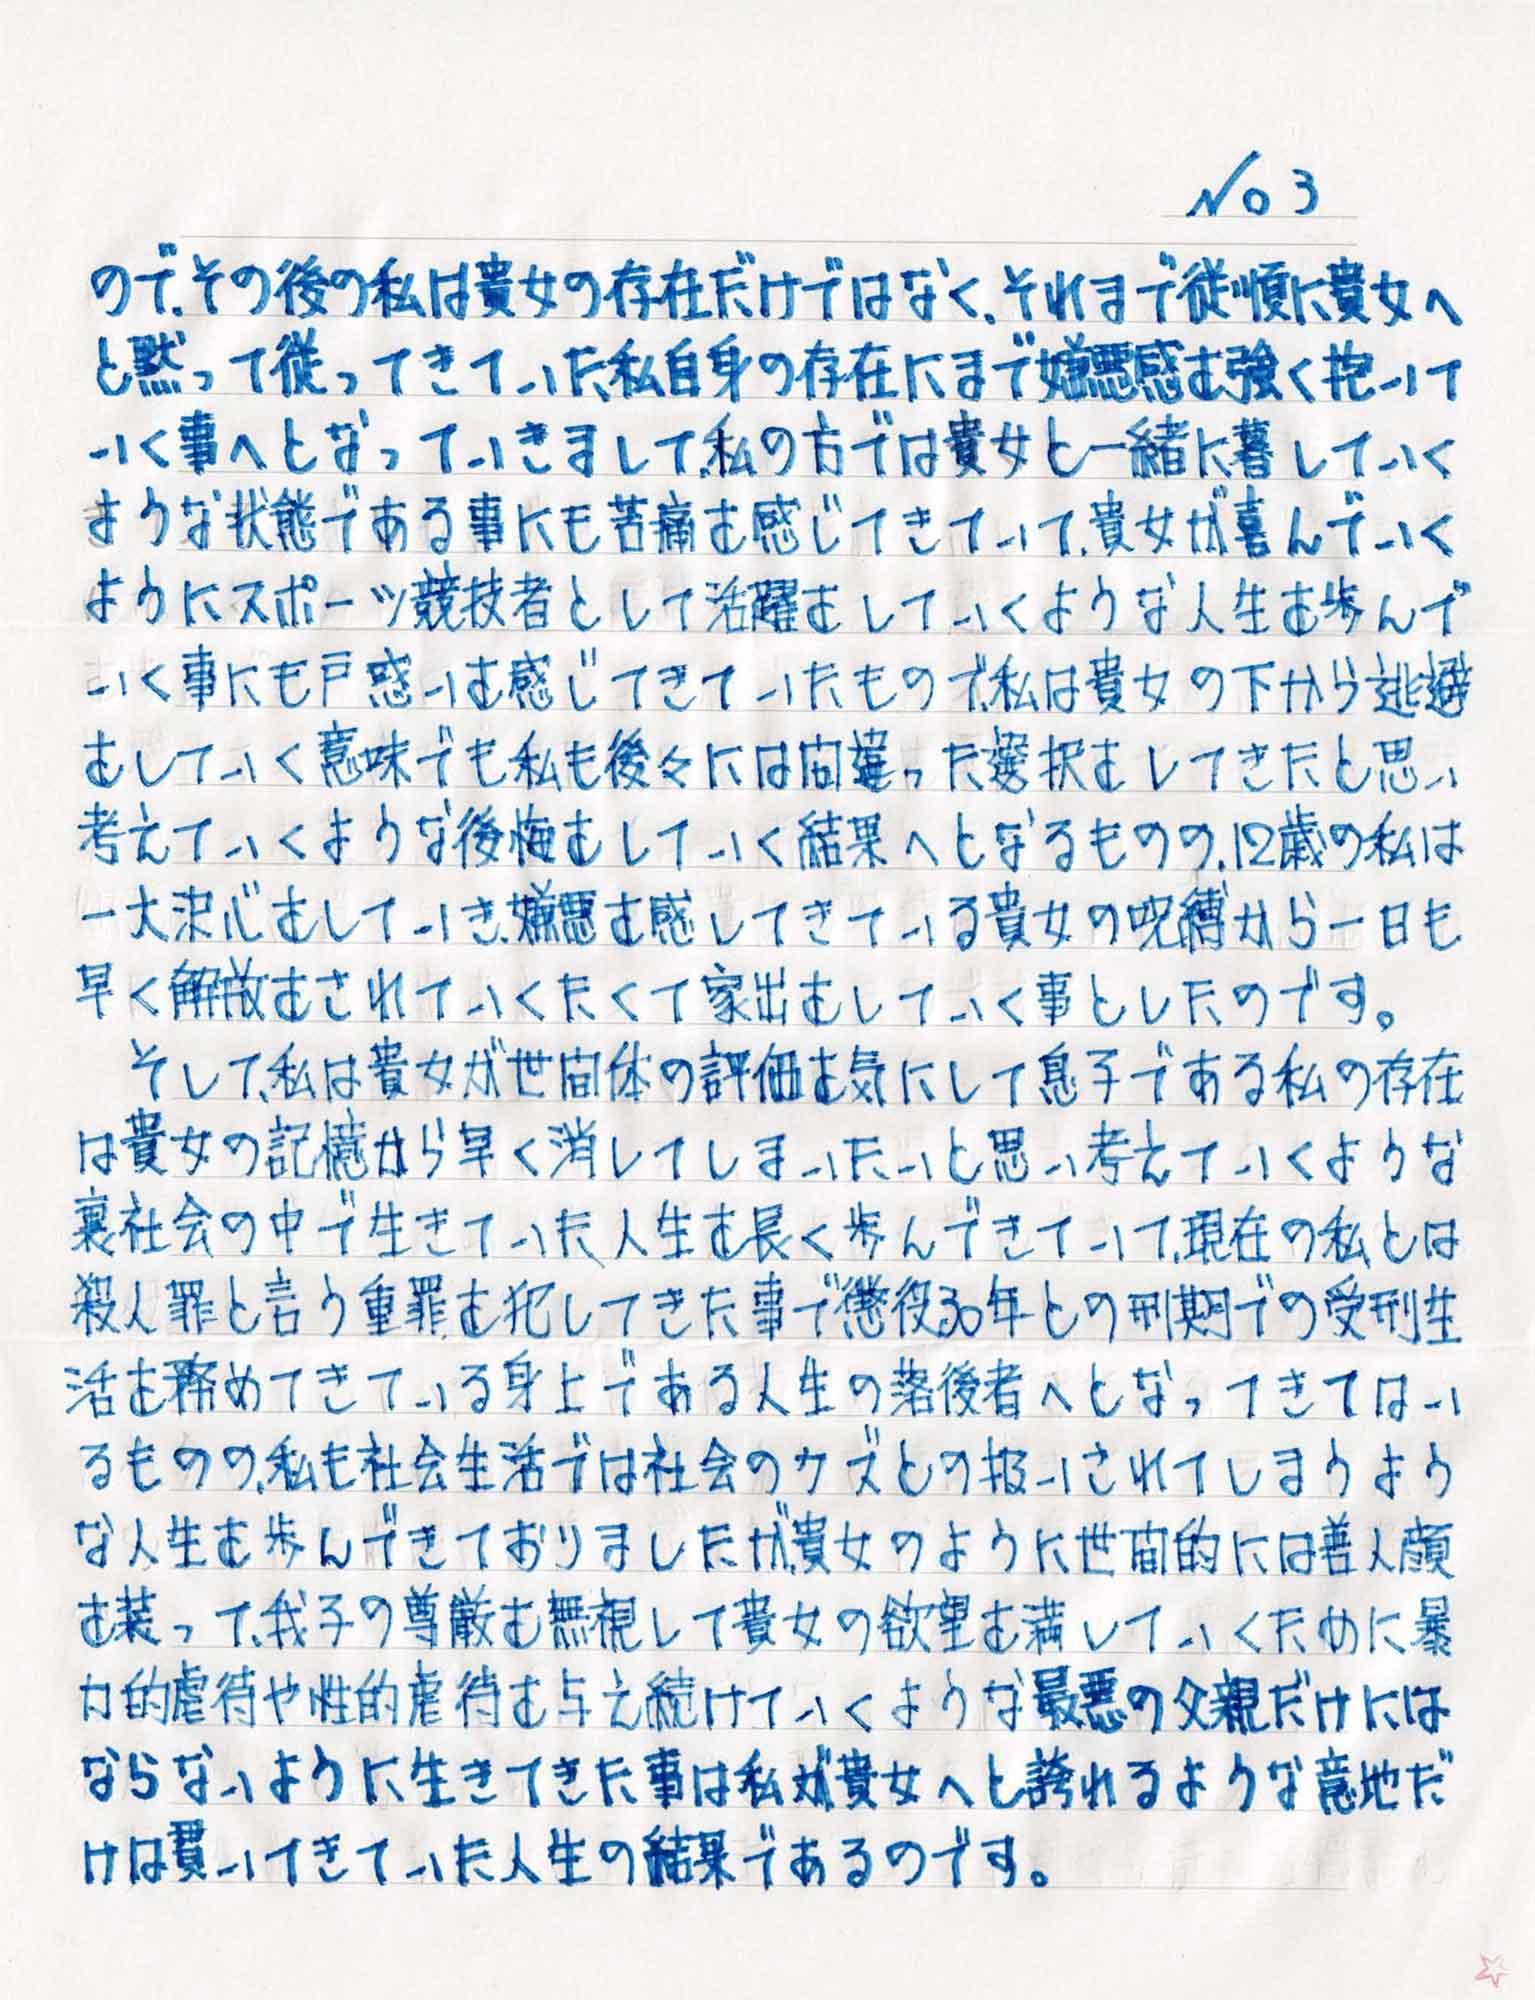 No 3
ので、その後の私は貴女の存在だけではなく、それまで従順に貴女へ
と黙って従ってきていた、私自身の存在にまで嫌悪感を強く抱いて
いく事へとなっていきまして、私の方では貴女と一緒に暮していく
ような状態である事にも苦痛を感じてきていて、貴女が喜んでいく
ようにスポーツ競技者として活躍をしていくような人生を歩んで
いく事にも戸惑いを感じてきていたもので、私は貴女の下から逃避
をしていく意味でも私も後々には間違った選択をしてきたと思い
考えていくような後悔をしていく結果へとなるものの、12歳の私は
一大決心をしていき、嫌悪を感してきている貴女の呪縛から一日も
早く解放をされていくたくて家出をしていく事としたのです。
そして、私は貴女が世間体の評価を気にして息子である私の存在
は貴女の記憶から早く消してしまいたいと思い考えていくような
裏社会の中で生きていた人生を長く歩んできていて、現在の私とは
殺人罪と言う重罪を犯してきた事で懲役30年との刑期での受刑生
活を務めてきている身上である人生の落後者へとなってきてはい
るものの、私も社会生活では社会のクズとの扱いされてしまうよう
な人生を歩んできておりましたが、貴女のように世間的には善人顔
を装って、我子の尊厳を無視して貴女の欲望を満していくために暴
力的虐待や性的虐待を与え続けていくような最悪の父親だけには
ならないように生きてきた事は私が貴女へと誇れるような意地だ
けは貫いてきていた人生の結果であるのです。